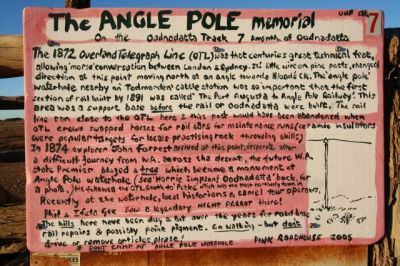 The ANGLE POLE memorial
UHF CH
7
On the Oodnadatta Track 7 km north of Oodnadatta
The 1872 Overland Telegraph Line (OTL) was that centuries great technical feat,
allowing morse conversation between London & Sydney. Its little wire on pine posts changed
direction at this point moving north at an angle towards The 'angle pole'
waterhole nearby on Todmorden cattle station was so important that the first
section of rail built by 1891 was called 'The Port Augusta to Angle Pole Railway'. This
area was a support base before the rail or Oodnadatta were built. The rail
line ran close to the OTL here & this post would have been abandoned when
OTL crews swapped horses for rail cars for maintenance runs (ceramic insulators
were popular targets for locals practising rock throwing skills)
In 1874 explorer John Forrest arrived at this point, desperate after
a difficult journey from W.A. across the desert, the future W.A.
state Premier blazed a tree which became a monument at
Angle Pole waterhole (see Horrie Simpson's 'Oodnadatta' book, for
a photo.) He followed the OTL south to 'Peake' which was the most northerly town in
Recently at the waterhole, local historians & camel tour operators,
Phil & Ifeta Gee saw a legendary NIGHT PARROT there!
The hills here have been dug a bit over the years for road base
rail repairs & possibly paint pigment. Go walking - but don't
drive or remove articles please!
PINK ROADHOUSE 2005
* DON'T CAMP AT ANGLE POLE WATERHOLE